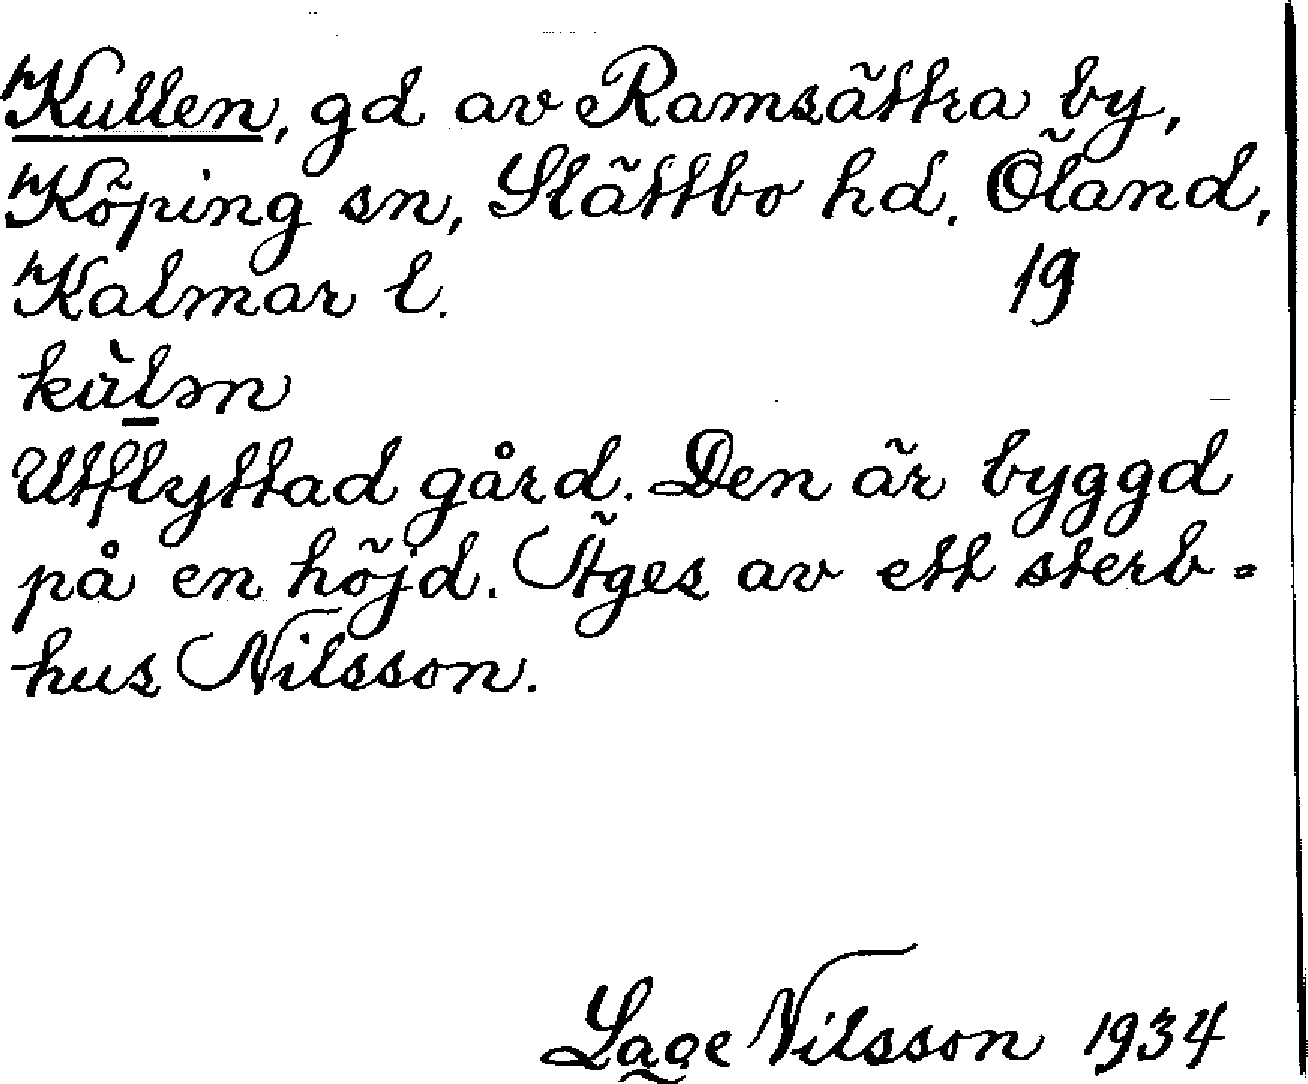 Kullen, gd av Ramsättra by,
Köping sn, Slättbo hd. Öland,
Kalmar l. 19
kùlən
Utflyttad gård. Den är byggd
på en höjd. Äges av ett sterb=
hus Nilsson.
Lage Nilsson 1934